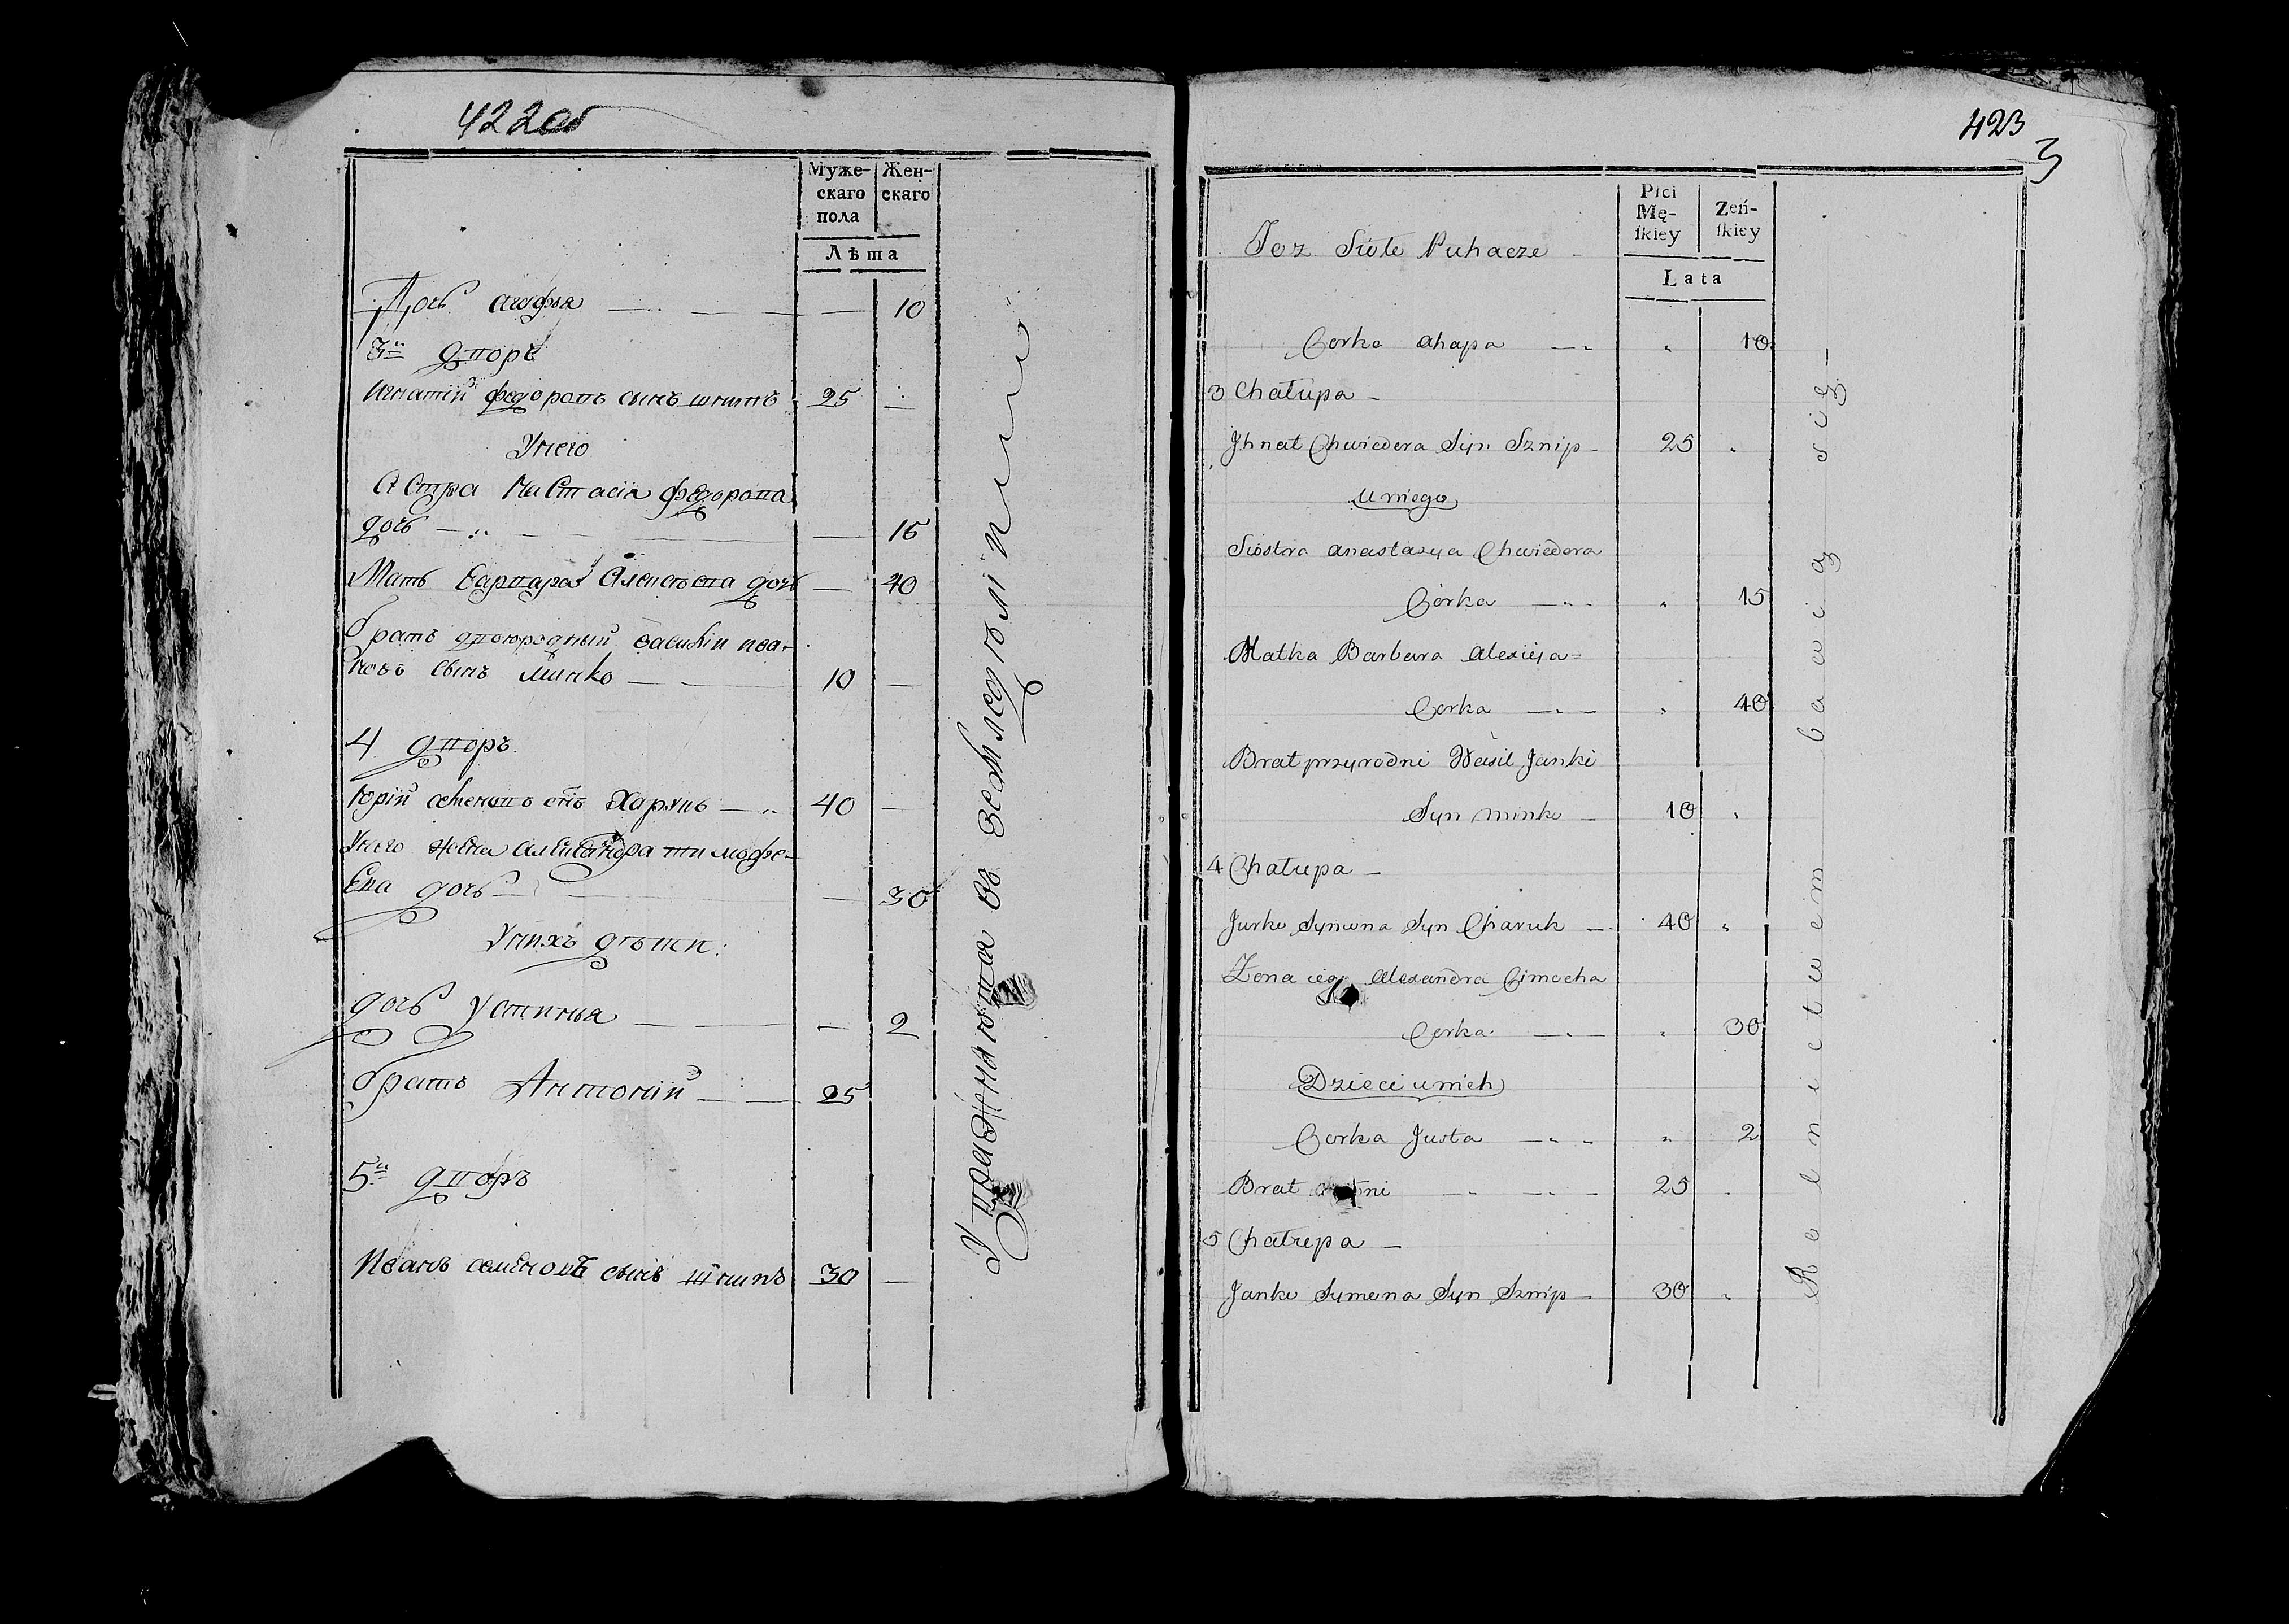 422об
Муже-
скаго
пола
Жен-
скаго
Лѣта
Дочь Агафья — — 10
3й дворъ
Игнатій Федоровъ сынъ шнипъ 25 —
У него
Сестра Настасія Федорова
дочь — — 15
Мать Варвара Алексѣева дочь — 40
братъ двоюродный василій ива-
новъ сынъ Минко — 10 —
4 дворъ
Юрій семеновъ снъ Харукъ — 40 —
У него жена александра тимофе-
ева дочь — — 30
У нихъ дѣти:
дочь Устинья — — 2
братъ Антоній — 25
5й дворъ
Иванъ семеновъ сынъ шнипъ 30 —
Упражняются въ земледѣліи
423
3
Płci
Mę-
skiey
Zeń-
skiey
Lata
Toz Sioło Puhacze
Corka Ahapa — " 10
3 Chałupa —
Jhnat Chwiedora Syn Sznip — 25 "
u niego
Siostra Anastazya Chwiedora
Córka — " 15
Matka Barbara Alexieja=
Corka — " 40
Brat przyrodni Wasil Janki
Syn Minko — 10 "
4 Chałupa —
Jurko Symona Syn Charuk — 40 "
Zona iego Alexandra Cimocha
Corka — " 30
Dzieci u nich
Corka Justa — " 2
Brat — 25
5 Chałupa —
Janko Symona Syn Sznip — 30 "
Rolnictwem bawią się —